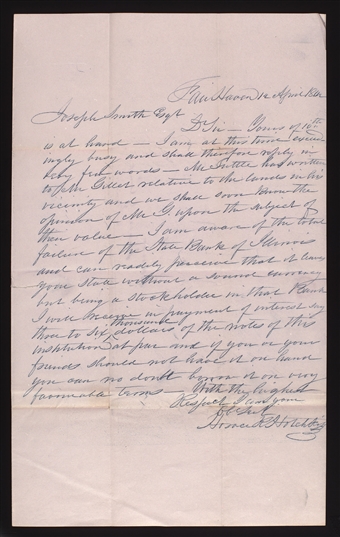 Fair Haven 12 April 1842
Joseph Smith Esqr
D Sir — Yours of 10th
is at hand — I am at this time exceed
ingly busy and shall therefore reply in
very few words — Mr Tuttle has written
to Mr Gillet relative to the lands in his
vicinity and we shall soon know the
opinion of Mr G. upon the subject of
their value — I am aware of the total
failure of the State Bank of Illinois
and can readily perceive that it leaves
your State without a sound currency
but being a stockholder in that Bank
I will receive in payment of interest say
thousand
five to six dollars of the notes of this
institution at par and if you or your
friends should not have it on hand
you can no doubt borrow it on very
favourable terms — With the highest
Respect I am your
Ob Sevt
Horace R Hotchkiss